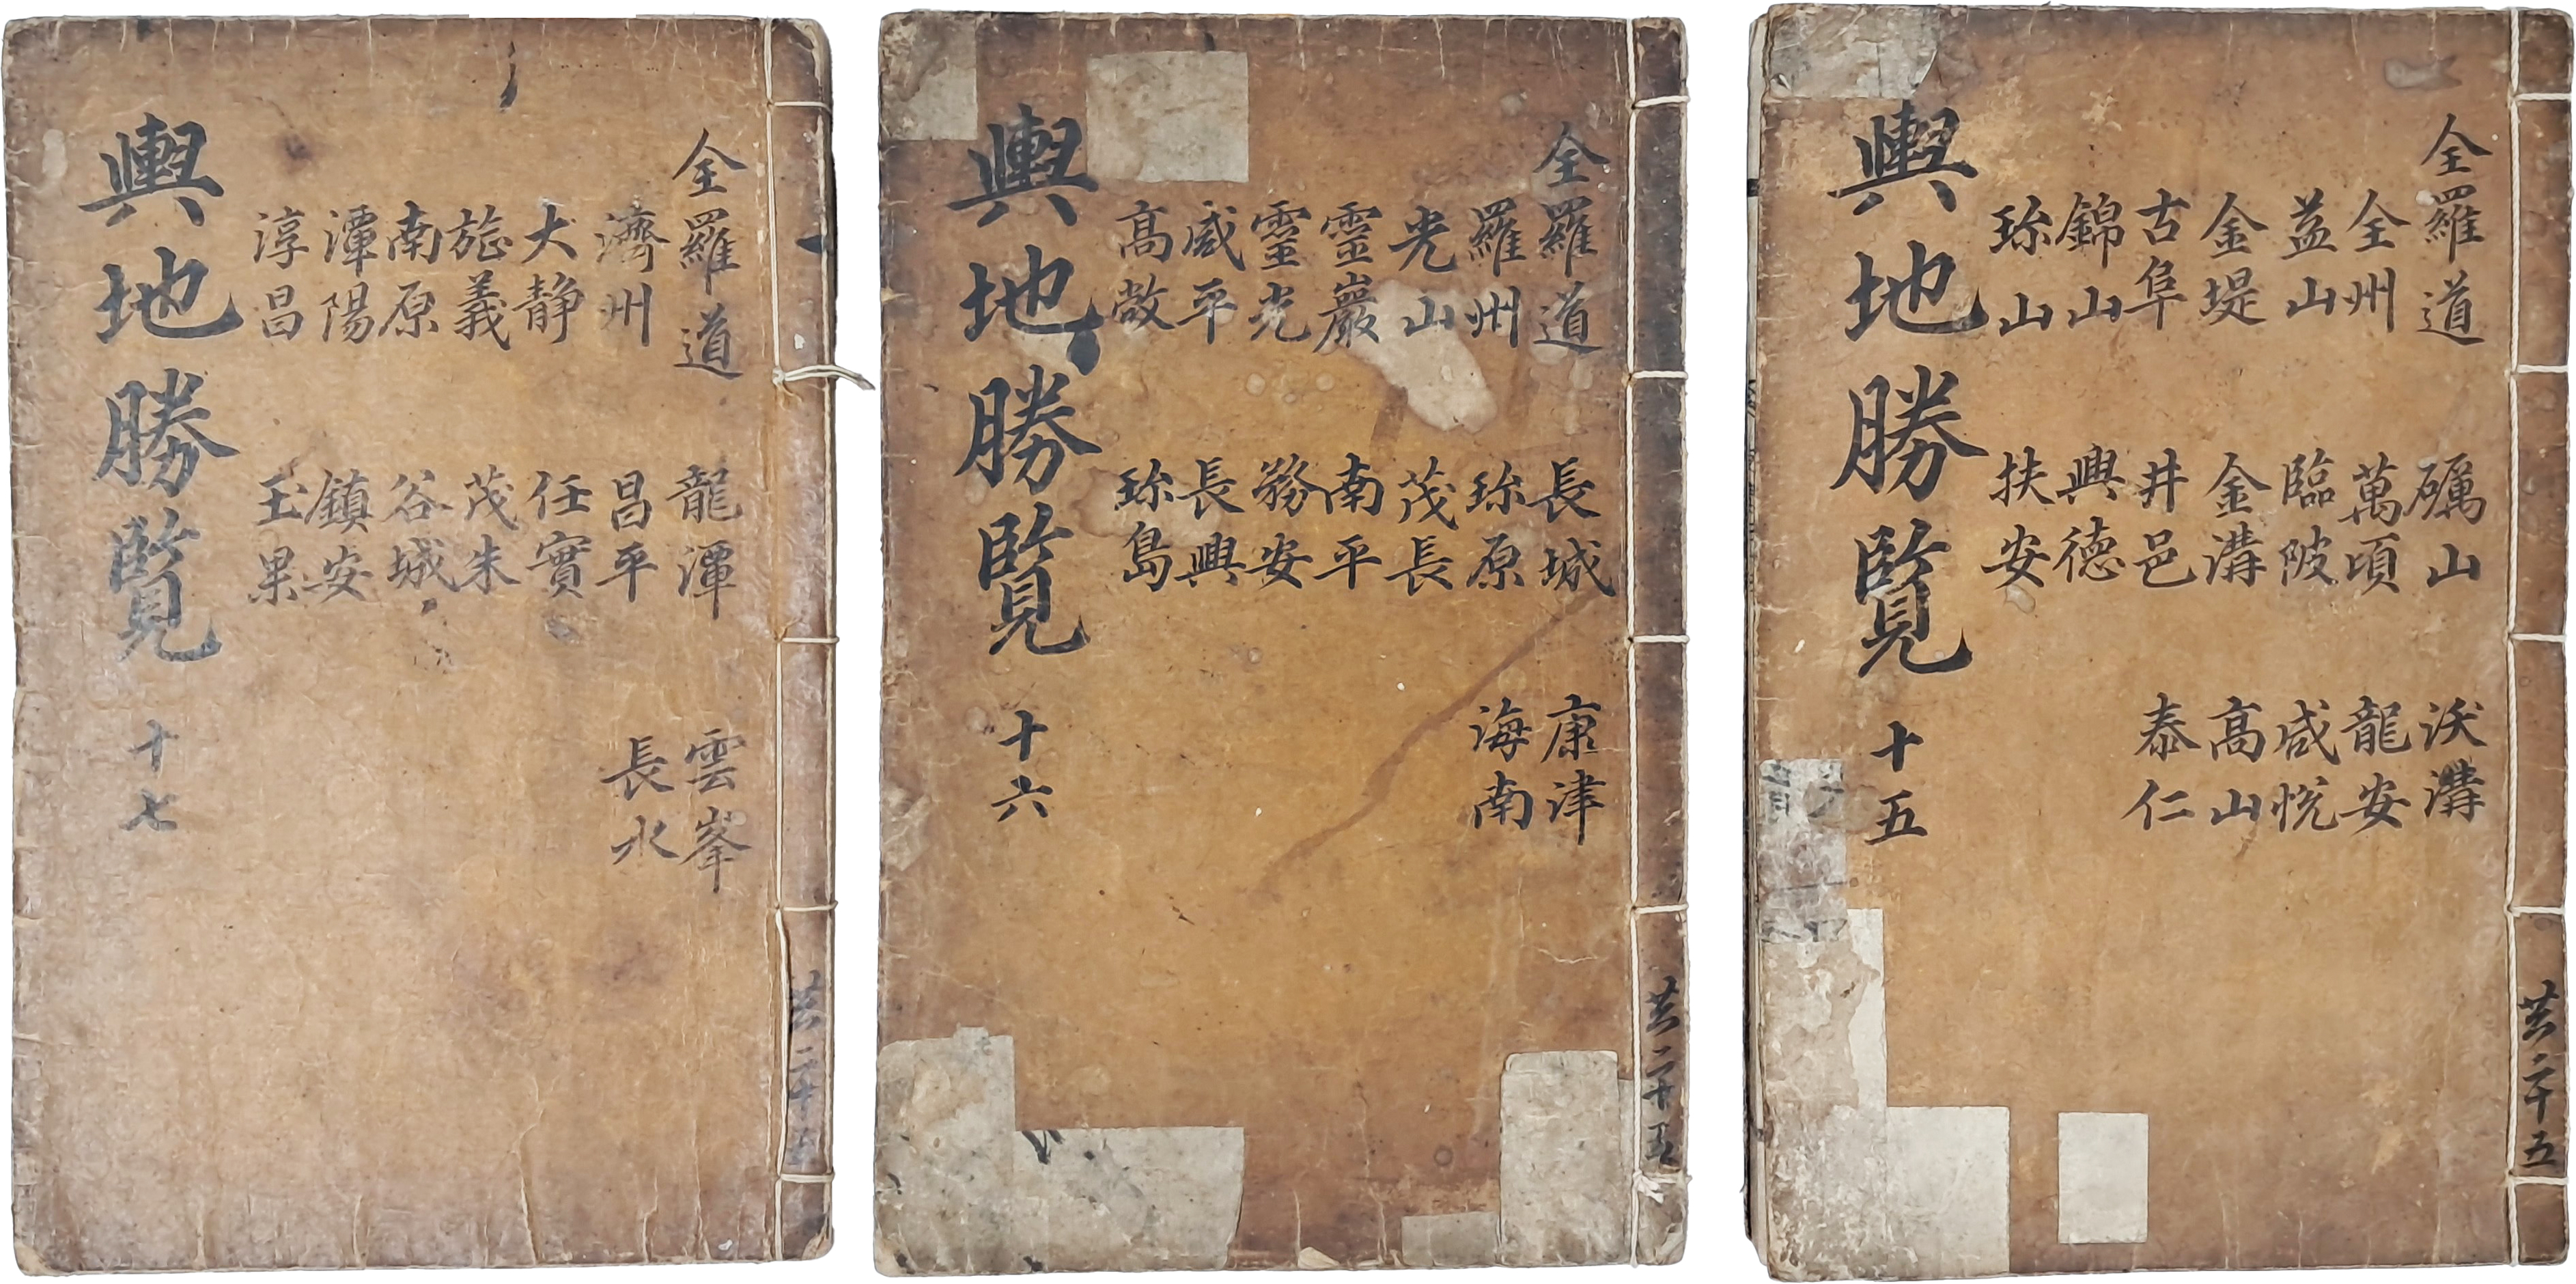 共二十五
全羅道 礪山 沃溝
全州 萬頃 龍安
益山 臨陂 咸悅
金堤 金溝 高山
古阜 井邑 泰仁
錦山 興德
珍山 扶安
輿地勝覽 十五
共二十五
全羅道 長城 康津
羅州 珍原 海南
光山 茂長
靈巖 南平
靈光 務安
咸平 長興
高敞 珍島
輿地勝覽 十六
共二十五
全羅道 龍潭 雲峯
濟州 昌平 長水
大静 任實
旌義 茂朱
南原 谷城
潭陽 鎮安
淳昌 玉果
輿地勝覽 十七